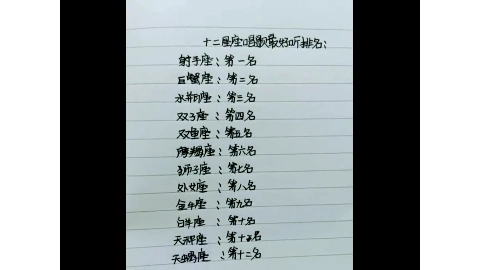 十二星座唱歌最好听排名:
射手座:第一名
巨蟹座:第二名
水瓶座:第三名
双子座:第四名
双鱼座:第五名
摩羯座:第六名
狮子座:第七名
处女座:第八名
金牛座:第九名
白羊座:第十名
天秤座:第十一名
天蝎座:第十二名